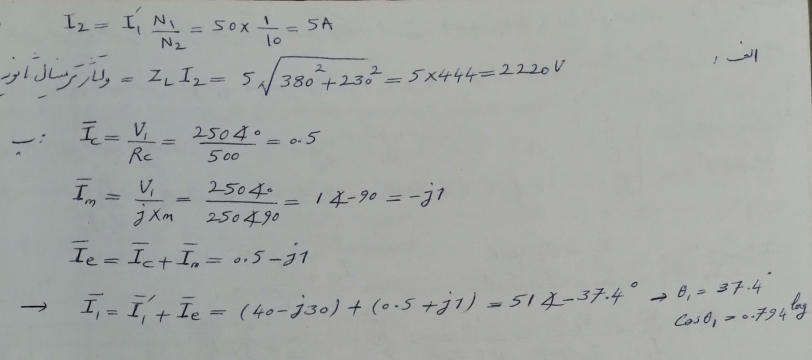 I₂ = I₁′ N₁/N₂ = 50 × 1/10 = 5A
الف: ولتاژ ترمینال ثانویه = Z_L I₂ = 5 √(380² + 230²) = 5×444 = 2220 V
ب: Ī_c = V₁/R_c = 250∡0/500 = 0.5
Ī_m = V₁/jX_m = 250∡0/250∡90 = 1∡-90 = -j1
Ī_e = Ī_c + Ī_m = 0.5 - j1
→ Ī₁ = Ī₁′ + Ī_e = (40 - j30) + (0.5 + j1) = 51∡-37.4° → θ₁ = 37.4°
Cosθ₁ = 0.794 lag